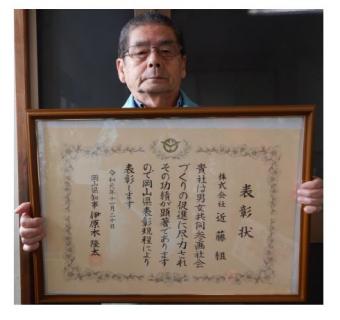 表彰状
株式会社 近藤組
貴社は男女共同参画社会
づくりの促進に尽力され
その功績が顕著であります
ので岡山県表彰規程により
表彰します
令和元年十一月二十日
岡山県知事 伊原木隆太